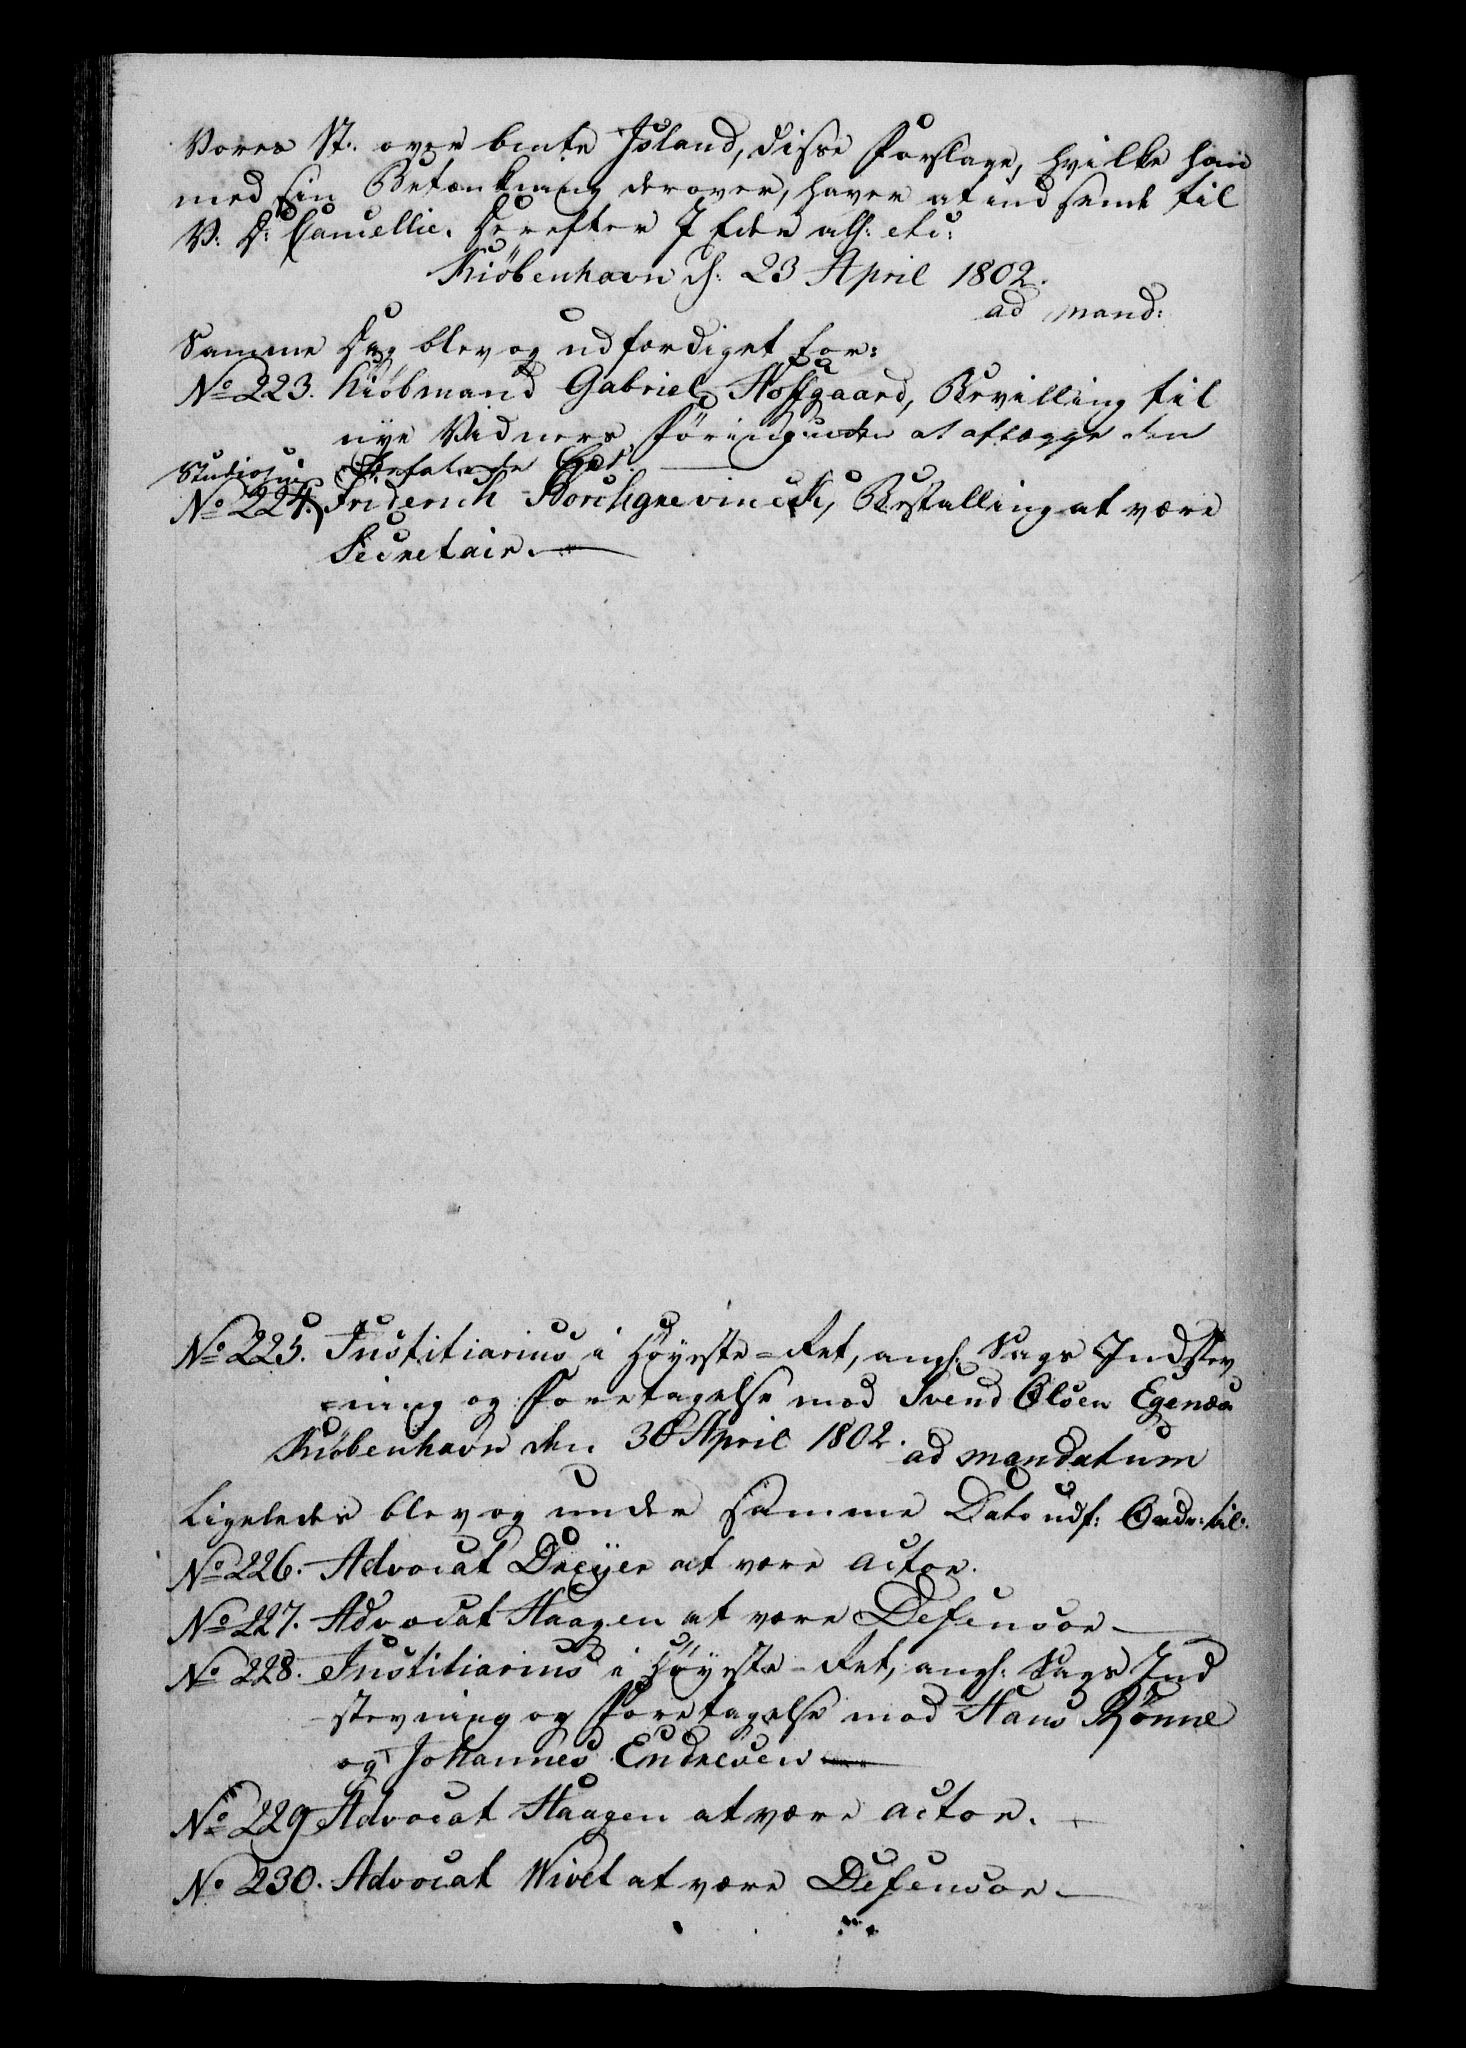 Vores St. over bemte Island, disse Forslage, hvilke han
med sin Betænkning derover, haver at indsende til
V: D: Cancellie. Derefter I Eder all: etc:
Kiöbenhavn d: 23 April 1802.
ad mand:
Samme Dag blev og udfærdiget for:
No 223. Kiöbmand Gabriel Hofgaard, Bevilling til
nye Vidners Föring uden at aflægge den
befalede Eed.
Studiosus
No 224. Friderich Borchgrevinck, Bestalling at være
Secretair.
No 225. Justitiarius i Höyeste-Ret, angl. Sags Indstev
-ning og Foretagelse mod Svend Olsen Egenæs
Kiöbenhavn den 30 April 1802.
ad mandatum
Ligeledes blev og under samme Dato udf: Ordr: til:
No 226. Advocat Dreyer at være Actor.
No 227. Advocat Haagen at være Defensor
No 228. Justitiarius i Höyeste-Ret, angl: Sags Ind
-stevning og Foretagelse mod Hans Rönne
og Johannes Endresen
No 229 Advocat Haagen at være Actor.
No 230. Advocat Wivet at være Defensor